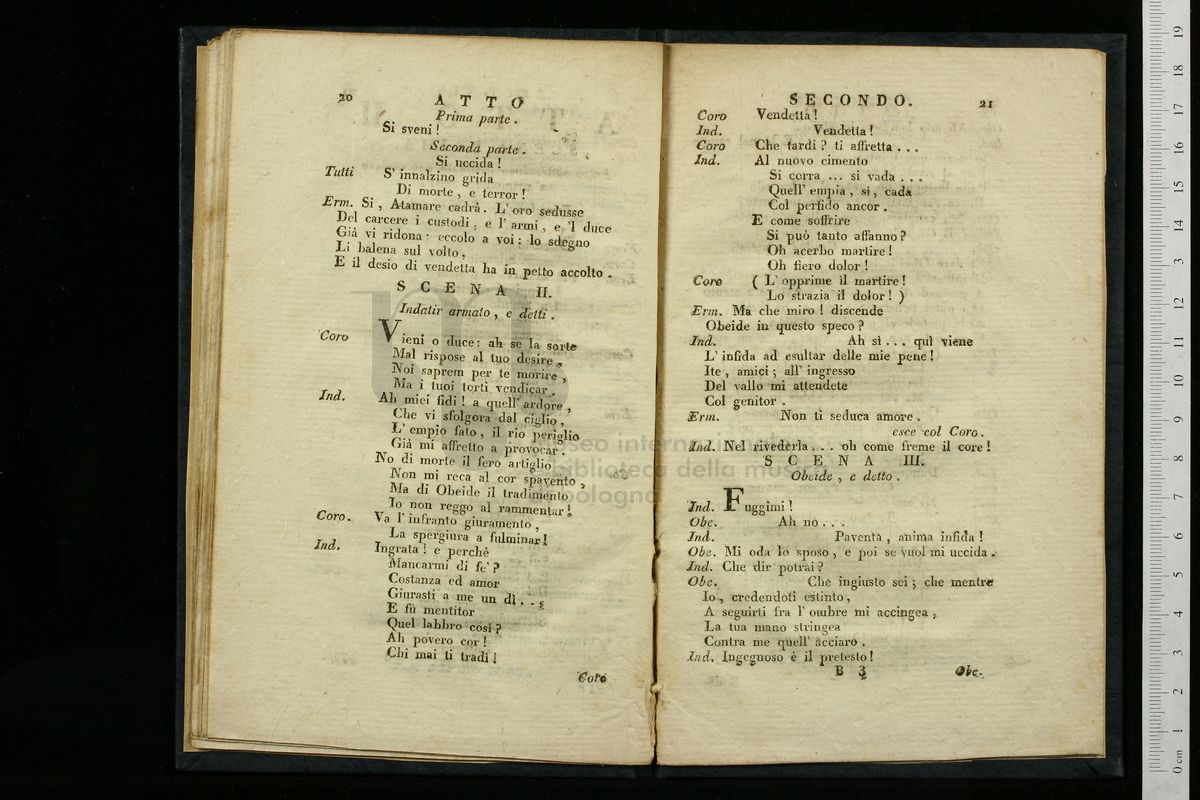 20 ATTO
Prima parte.
Si sveni!
Seconda parte.
Si uccida!
Tutti S' innalzino grida
Di morte, e terror!
Erm. Si, Atamare cadrà. L' oro sedusse
Del carcere i custodi, e l' armi, e 'l duce
Già vi ridona: eccolo a voi: lo sdegno
Li balena sul volto,
E il desio di vendetta ha in petto accolto.
SCENA II.
Indatir armato, e detti.
Coro Vieni o duce: ah se la sorte
Mal rispose al tuo desire,
Noi saprem per te morire,
Ma i tuoi torti vendicar.
Ind. Ah miei fidi! a quell' ardore,
Che vi sfolgora dal ciglio,
L' empio fato, il rio periglio
Già mi affretto a provocar.
No di morte il fero artiglio
Non mi reca al cor spavento,
Ma di Obeide il tradimento
Io non reggo al rammentar!
Coro. Va l' infranto giuramento,
La spergiura a fulminar!
Ind. Ingrata! e perchè
Mancarmi di fe'?
Costanza ed amor
Giurasti a me un dì...
E fù mentitor
Quel labbro così?
Ah povero cor!
Chi mai ti tradì!
Coro
SECONDO. 21
Coro Vendetta!
Ind. Vendetta!
Coro Che tardi? ti affretta...
Ind. Al nuovo cimento
Si corra ... si vada...
Quell' empia, si, cada
Col perfido ancor.
E come soffrire
Si può tanto affanno?
Oh acerbo martire!
Oh fiero dolor!
Coro (L' opprime il martire!
Lo strazia il dolor!)
Erm. Ma che miro! discende
Obeide in questo speco?
Ind. Ah sì... quì viene
L' infida ad esultar delle mie pene!
Ite, amici; all' ingresso
Del vallo mi attendete
Col genitor.
Erm. Non tì seduca amore.
esce col Coro.
Ind. Nel rivederla... oh come freme il core!
SCENA III.
Obeide, e detto.
Ind. Fuggimi!
Obe. Ah no...
Ind. Paventa, anima infida!
Obe. Mi oda lo sposo, e poi se vuol mi uccida.
Ind. Che dir potrai?
Obe. Che ingiusto sei; che mentre
Io, credendoti estinto,
A seguirti fra l' ombre mi accingea,
La tua mano stringea
Contra me quell' acciaro.
Ind. Ingegnoso è il pretesto!
B 3 Obe.
museo internazionale
e biblioteca della musica
di bologna
0 cm 1 2 3 4 5 6 7 8 9 10 11 12 13 14 15 16 17 18 19